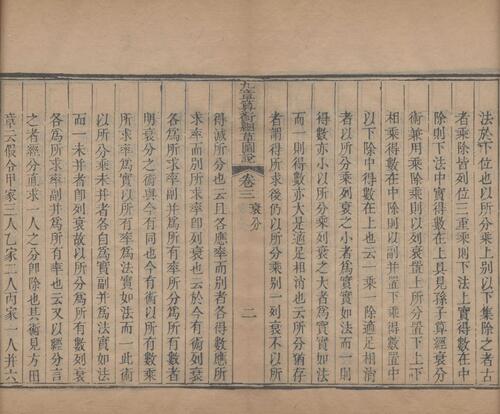 法於下位也以所求乘上別以下集除之者古
者乘除皆列位三重乘則下法上實得數在中
除則下法中實得數在上具見孫子算經衰分
術兼用乘除則以列衰置上所分置下上下
相乘得數在中除則以副并置下乘得數置中
以下除中得數在上也云一乘一除適足相消
者以所分乘列衰之小者爲實實如法而一則
得數亦小以所分乘列衰之大者爲實實如法
而一則得數亦大是適足相消也云所分猶存
者謂得所求後仍以所分乘別一列衰不以所
九章算術細草圖說 卷三 衰分 二
得減所分也云且各應率而別者各得數應所
求率而別所求率卽列衰也云於今有術列衰
各爲所求率副并爲所有率所分爲所有數又
明衰分之術與今有同也今有術以所有數乘
所求率爲實以所有率爲法實如法而一此術
以所分乘未并者各自爲實副并爲法實如法
而一未并者卽列衰故以所分爲所有數列衰
各爲所求率副并爲所有率也云又以經分言
之者經分直求一人之分卽除也其術見方田
章云假令甲家三人乙家二人丙家一人并六